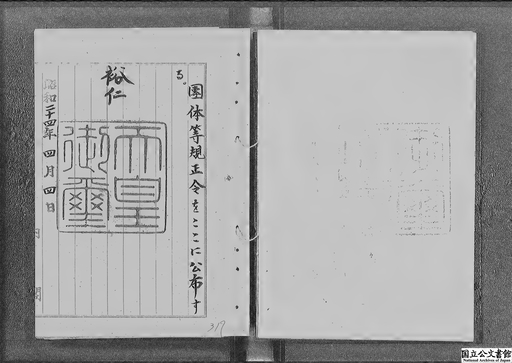 団体等規正令をここに公布す
る。
裕仁
天皇
御璽
昭和二十四年四月四日
317
国立公文書館
National Archives of Japan